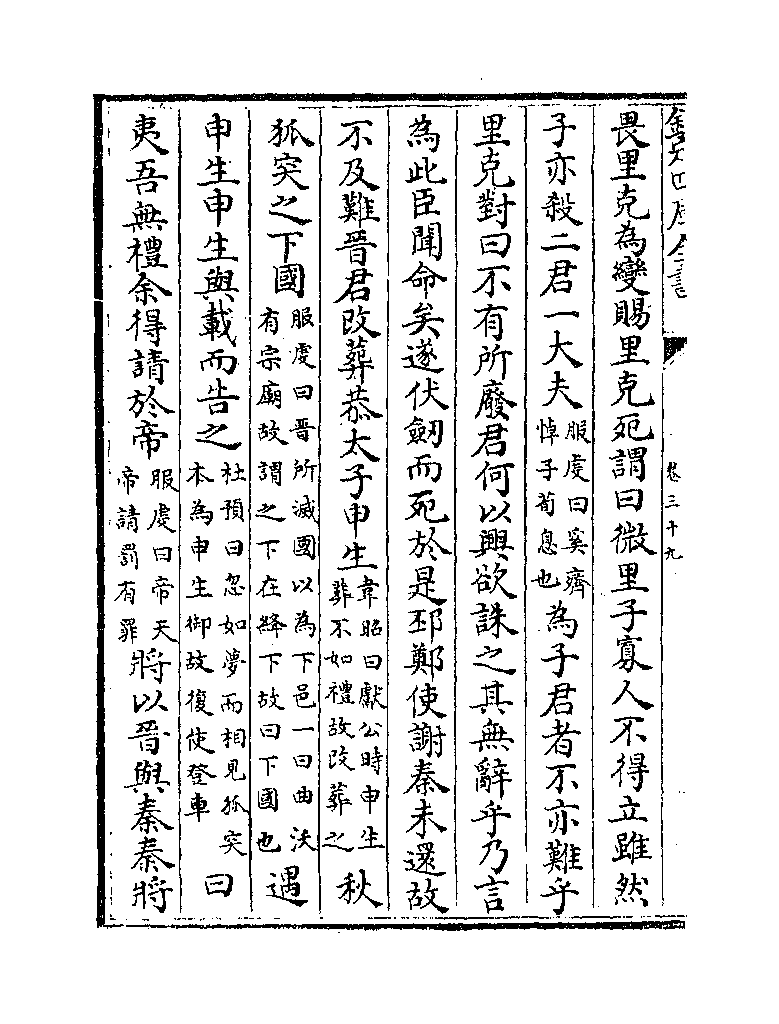 欽定四庫全書
卷三十九
畏里克為變賜里克死謂曰微里子寡人不得立雖然
子亦殺二君一大夫服虔曰奚齊悼子荀息也為子君者不亦難乎
里克對曰不有所廢君何以興欲誅之其無辭乎乃言
為此臣聞命矣遂伏劔而死於是邳鄭使謝秦未還故
不及難晉君改葬恭太子申生韋昭曰獻公時申生葬不如禮故改葬之秋
狐突之下國服虔曰晉所滅國以為下邑一曰曲沃有宗廟故謂之下在絳下故曰下國也遇
申生申生與載而告之杜預曰忽如夢而相見狐突本為申生御故復使登車曰
夷吾無禮余得請於帝服虔曰帝天帝請罰有罪將以晉與秦秦將